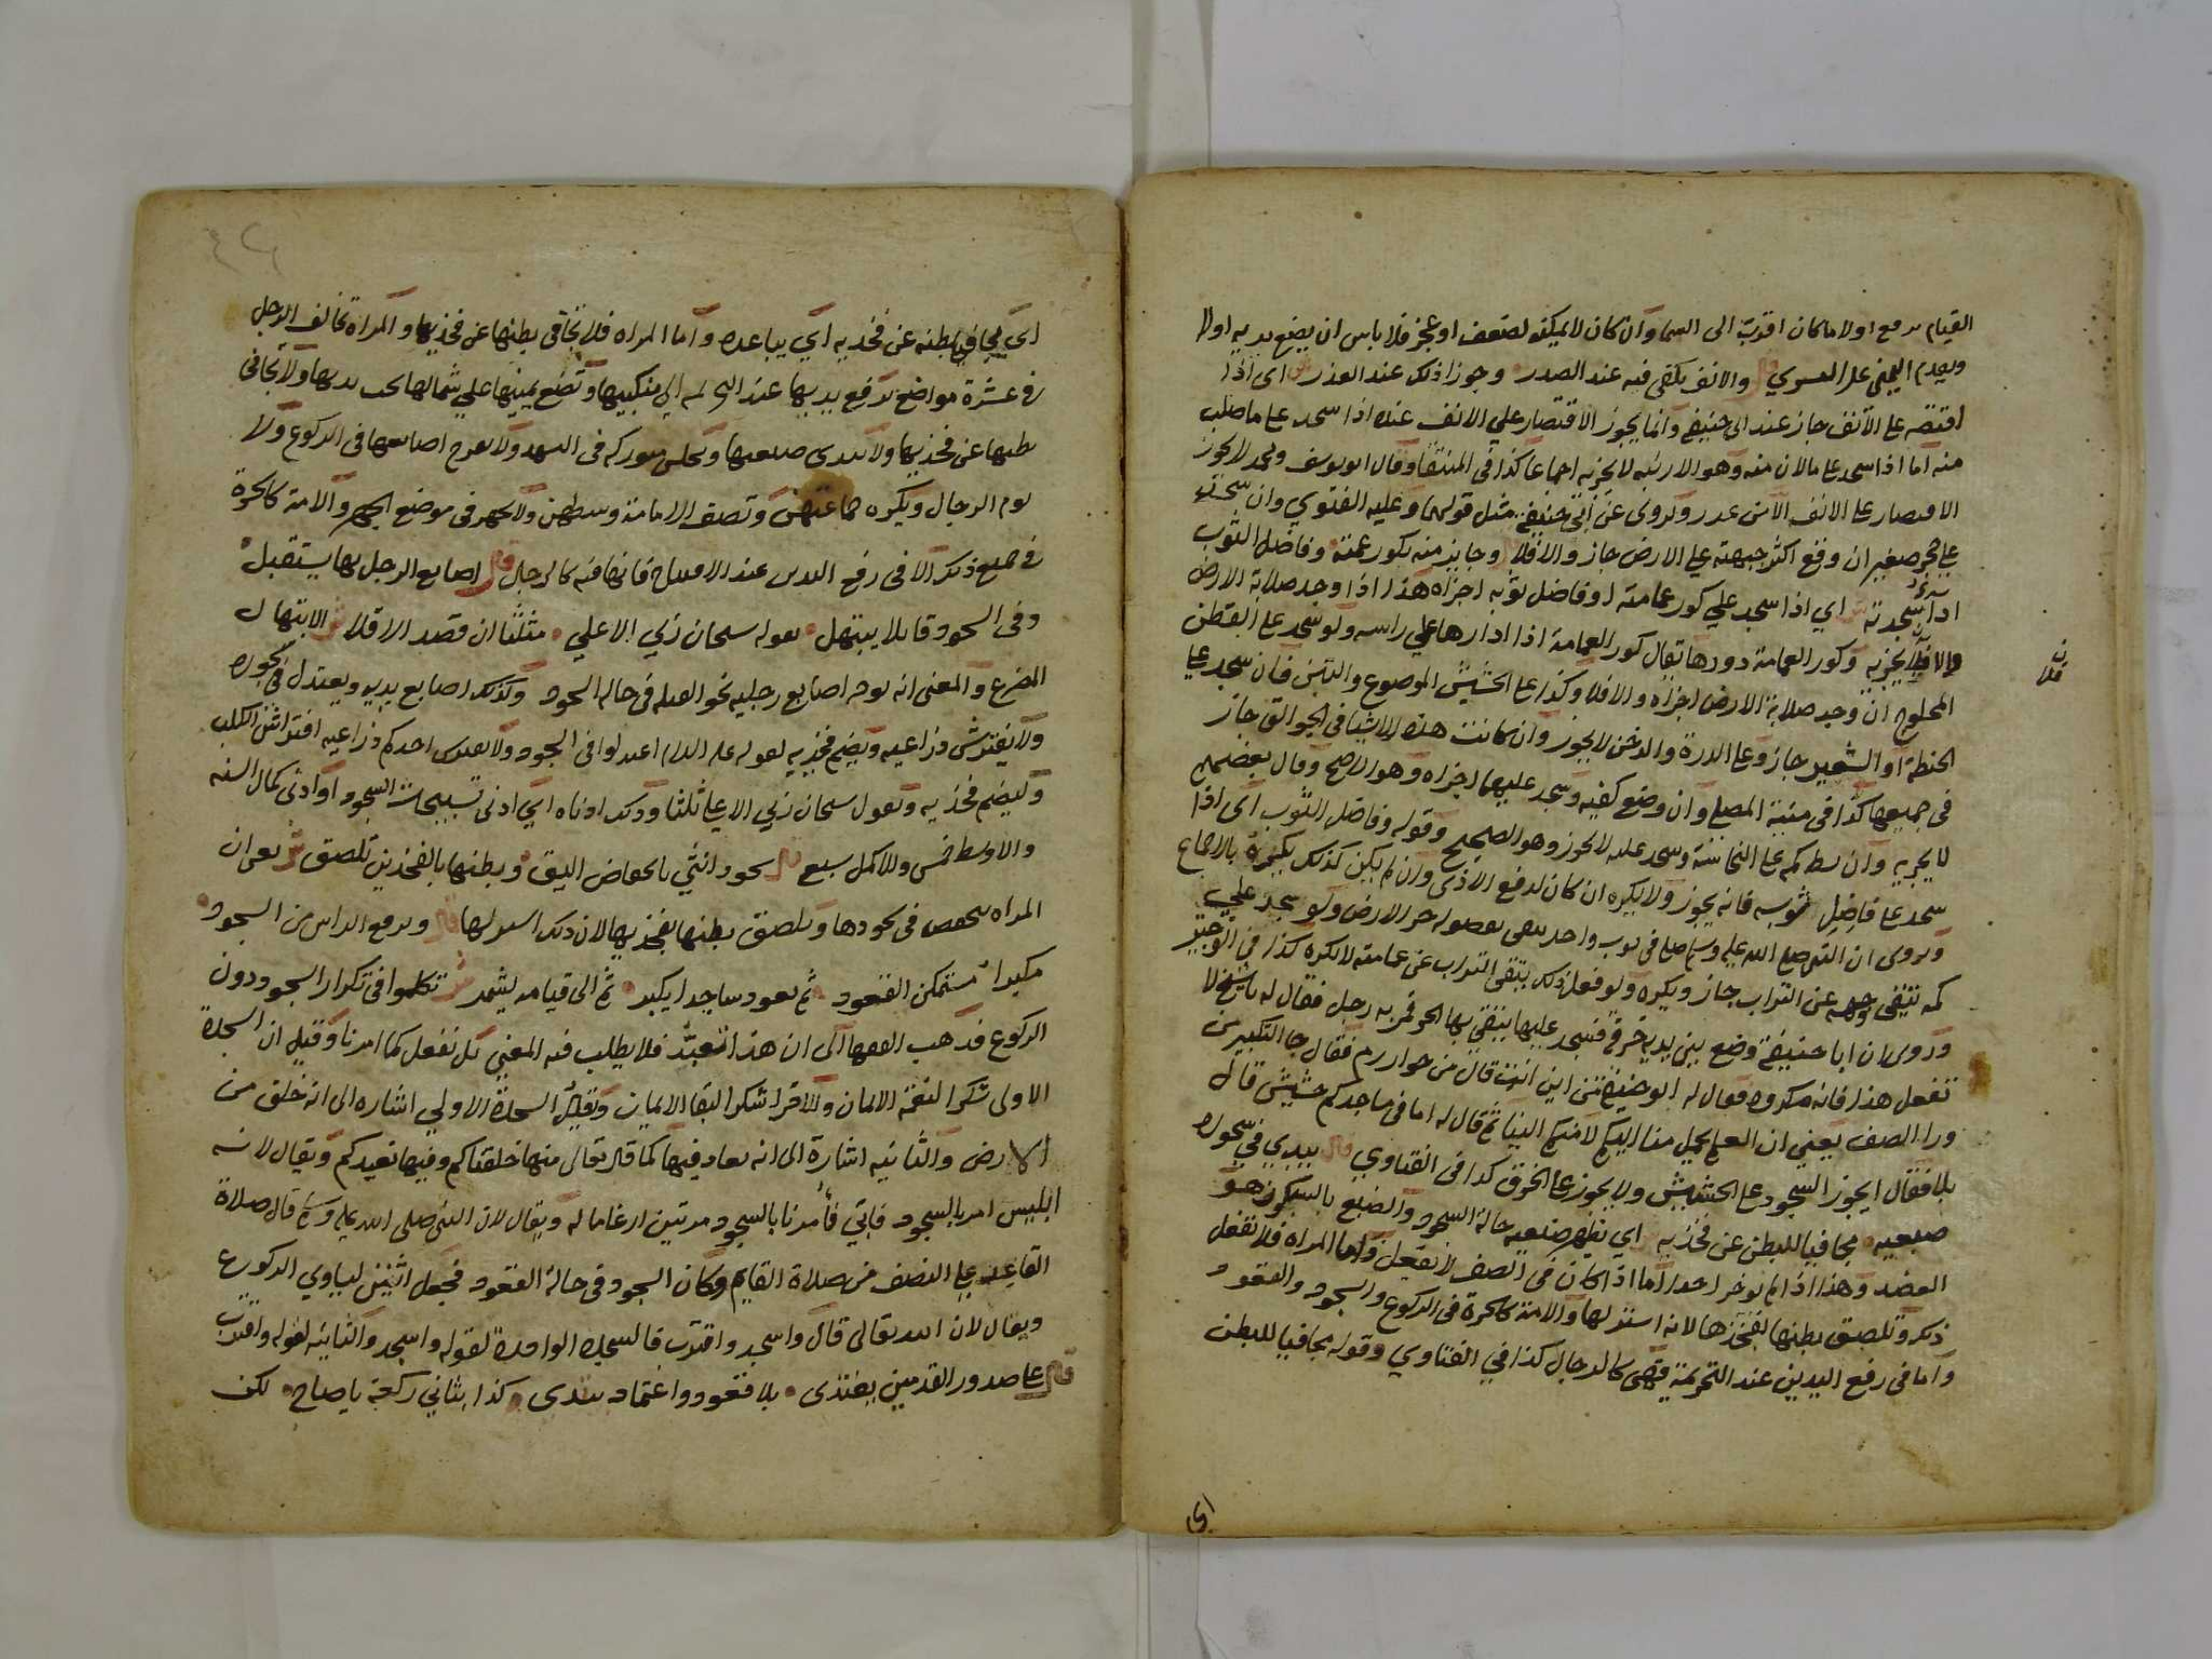 القيام يرفع اولا ما كان اقرب الى السما وان كان لا يمكنه لضعف او عجز فلا باس ان يضع يديه اولا
ويقدم اليمنى على اليسري قال والانف يكفى فيه عند الصدر وجوز اذلك عند العذر ش اى اذا
اقتصر على الانف جاز عند ابى حنيفة وانما يجوز الاقتصار علي الانف عنده اذا سجد على ما صلب
منه اما اذا سجد على ما لان منه وهو الارنبه لا يجزيه اجماعا كذا فى المنتقا وقال ابو يوسف ومحمد لا يجوز
الاقتصار على الانف الا من عذر ويروى عن ابى حنيفة مثل قولهما وعليه الفتوي وان سجد
على حجر صغير ان وقع اكثر جبهته علي الارض جاز والا فلا قال وجايز منه بكور عمته وفاضل الثوب
اذا سجدته ش اي اذا سجد علي كور عمامته او فاضل ثوبه اجزاه هذا اذا وجد صلابة الارض
والا فلا يجزيه وكور العمامة دورها يقال كور العمامة اذا ادارها علي راسه ولو سجد على القطن
المحلوج ان وجد صلابة الارض اجزاه والا فلا وكذا على الحشيش الموضوع والتبن فان سجد على
الحنطة او الشعير جاز وعلى الذرة والدخن لا يجوز وان كانت هذه الاشيا فى الجوالق جاز
فى جميعها كذا فى منية المصلى وان وضع كفيه وسجد عليهما اجزاه وهو الاصح وقال بعضهم
لا يجزيه وان بسط كمه على النجاسة وسجد عليه لا يجوز وهو الصحيح وقوله وفاضل الثوب اى اذا
سجد على فاضل ثوبه فانه يجوز ولا يكره ان كان لدفع الاذى وان لم يكن كذلك يكره بالاجماع
ويروى ان النبى صلى الله عليه وسلم صلى فى ثوب واحد يتقى بفضوله حر الارض ولو سجد علي
كمه يتقى وجهه عن التراب جاز ويكره ولو فعل ذلك يتقى التراب عن عمامته لا يكره كذا فى الوجيز
وروى ان ابا حنيفة وضع بين يديه خرقة فسجد عليها يتقى بها الحر فمر به رجل فقال له يا شيخ لا
تفعل هذا فانه مكروه فقال له ابو حنيفة من اين انت قال من خوارزم فقال جا التكبير من
ورا الصف يعني ان العلم يحمل منا اليكم لا منكم الينا ثم قال له اما فى مساجدكم حشيش قال
بلا فقال ايجوز السجود على الحشيش ولا يجوز على الخرق كذا فى الفتاوي قال يبدي في سجوده
ضبعيه مجافيا للبطن عن فخذيه اي يظهر ضبعيه حالة السجود والضبع بالسكون هو
العضد وهذا اذا لم يوذ احدا اما اذا كان فى الصف لا يفعل واما المراة فلا تفعل
ذلك وتلصق بطنها بفخذها لانه استر لها والامة كالحرة فى الركوع والسجود والقعود
واما فى رفع اليدين عند التحريمة فهى كالرجال كذا في الفتاوي وقوله مجافيا للبطن
فلا
اي
اى يجافي بطنه عن فخذيه اي يباعده واما المراه فلا تجافى بطنها عن فخذيها والمراة تخالف الرجل
فى عشرة مواضع ترفع يديها عند التحريم الي منكبيها وتضع يمينها علي شمالها تحت ثدييها ولا تجافى
بطنها عن فخذيها ولا تبدى ضبعيها وتجلس متوركه فى التشهد ولا تفرج اصابعها فى الركوع ولا
توم الرجال ويكره جماعتهن وتقف الامامة وسطهن ولا تجهر فى موضع الجهر والامة كالحرة
فى جميع ذلك الا فى رفع اليدين عند الافتتاح فانها فيه كالرجال قال اصابع الرجل بها يستقبل
وفى السجود قايلا يبتهل بقوله سبحان ربي الاعلي مثلثا ان قصد الاقلا ش الابتهال
التضرع والمعنى انه يوجه اصابع رجليه نحو القبله فى حاله السجود وكذلك اصابع يديه ويعتدل فى سجوده
ولا يفترش ذراعيه ويضم فخذيه لقوله عليه السلام اعتدلوا فى السجود ولا يفترش احدكم ذراعيه افتراش الكلب
وليضم فخذيه وتقول سبحان ربي الاعلى ثلثا وذلك ادناه اي ادنى تسبيحات السجود او ادنى كمال السنه
والاوسط خمس والاكمل سبع قال سجود انثي بانخفاض اليق وبطنها بالفخذين تلصق ش يعنى ان
المراه تنخفض فى سجودها وتلصق بطنها بفخذيها لان ذلك استر لها قال ويرفع الراس من السجود
مكبرا مستمكن القعود ثم يعود ساجدا يكبر ثم الى قيامه يشمر ش تكلموا فى تكرار السجود دون
الركوع فذهب الفقها الى ان هذا تعبد فلا يطلب فيه المعني بل نفعل كما امرنا وقيل ان السجدة
الاولى شكرا لنعمة الايمان والاخرا شكرا لبقا الايمان وقيل السجدة الاولي اشاره الى انه خلق من
الارض والثانيه اشارة الى انه يعاد فيها كما قال تعالى منها خلقناكم وفيها نعيدكم ويقال لانه
ابليس امر بالسجود فابي فامرنا بالسجود مرتين ارغاما له ويقال لان النبى صلى الله عليه وسلم قال صلاة
القاعد على النصف من صلاة القايم وكان السجود فى حالة القعود فجعل اثنين ليساوي الركوع
ويقال لان الله تعالى قال واسجد واقترب فالسجدة الواحدة لقوله واسجد والثانيه لقوله واقترب
قال على صدور القدمين يغتذى بلا قعود واعتماد يبتدى كذا بثاني ركعة يا صاح لكن